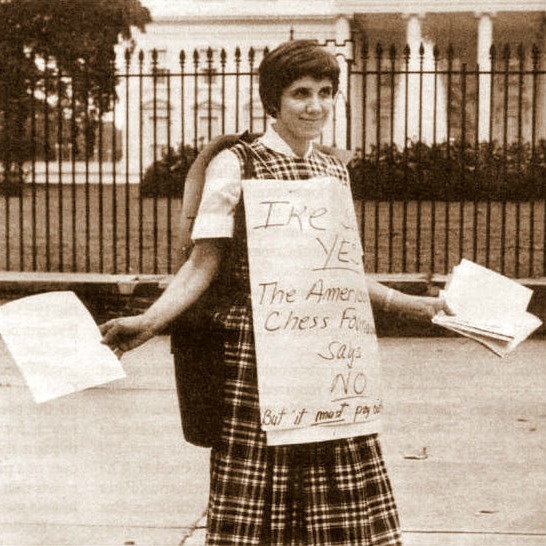 Ike
YES
The American
Chess
says
NO
But it must pay